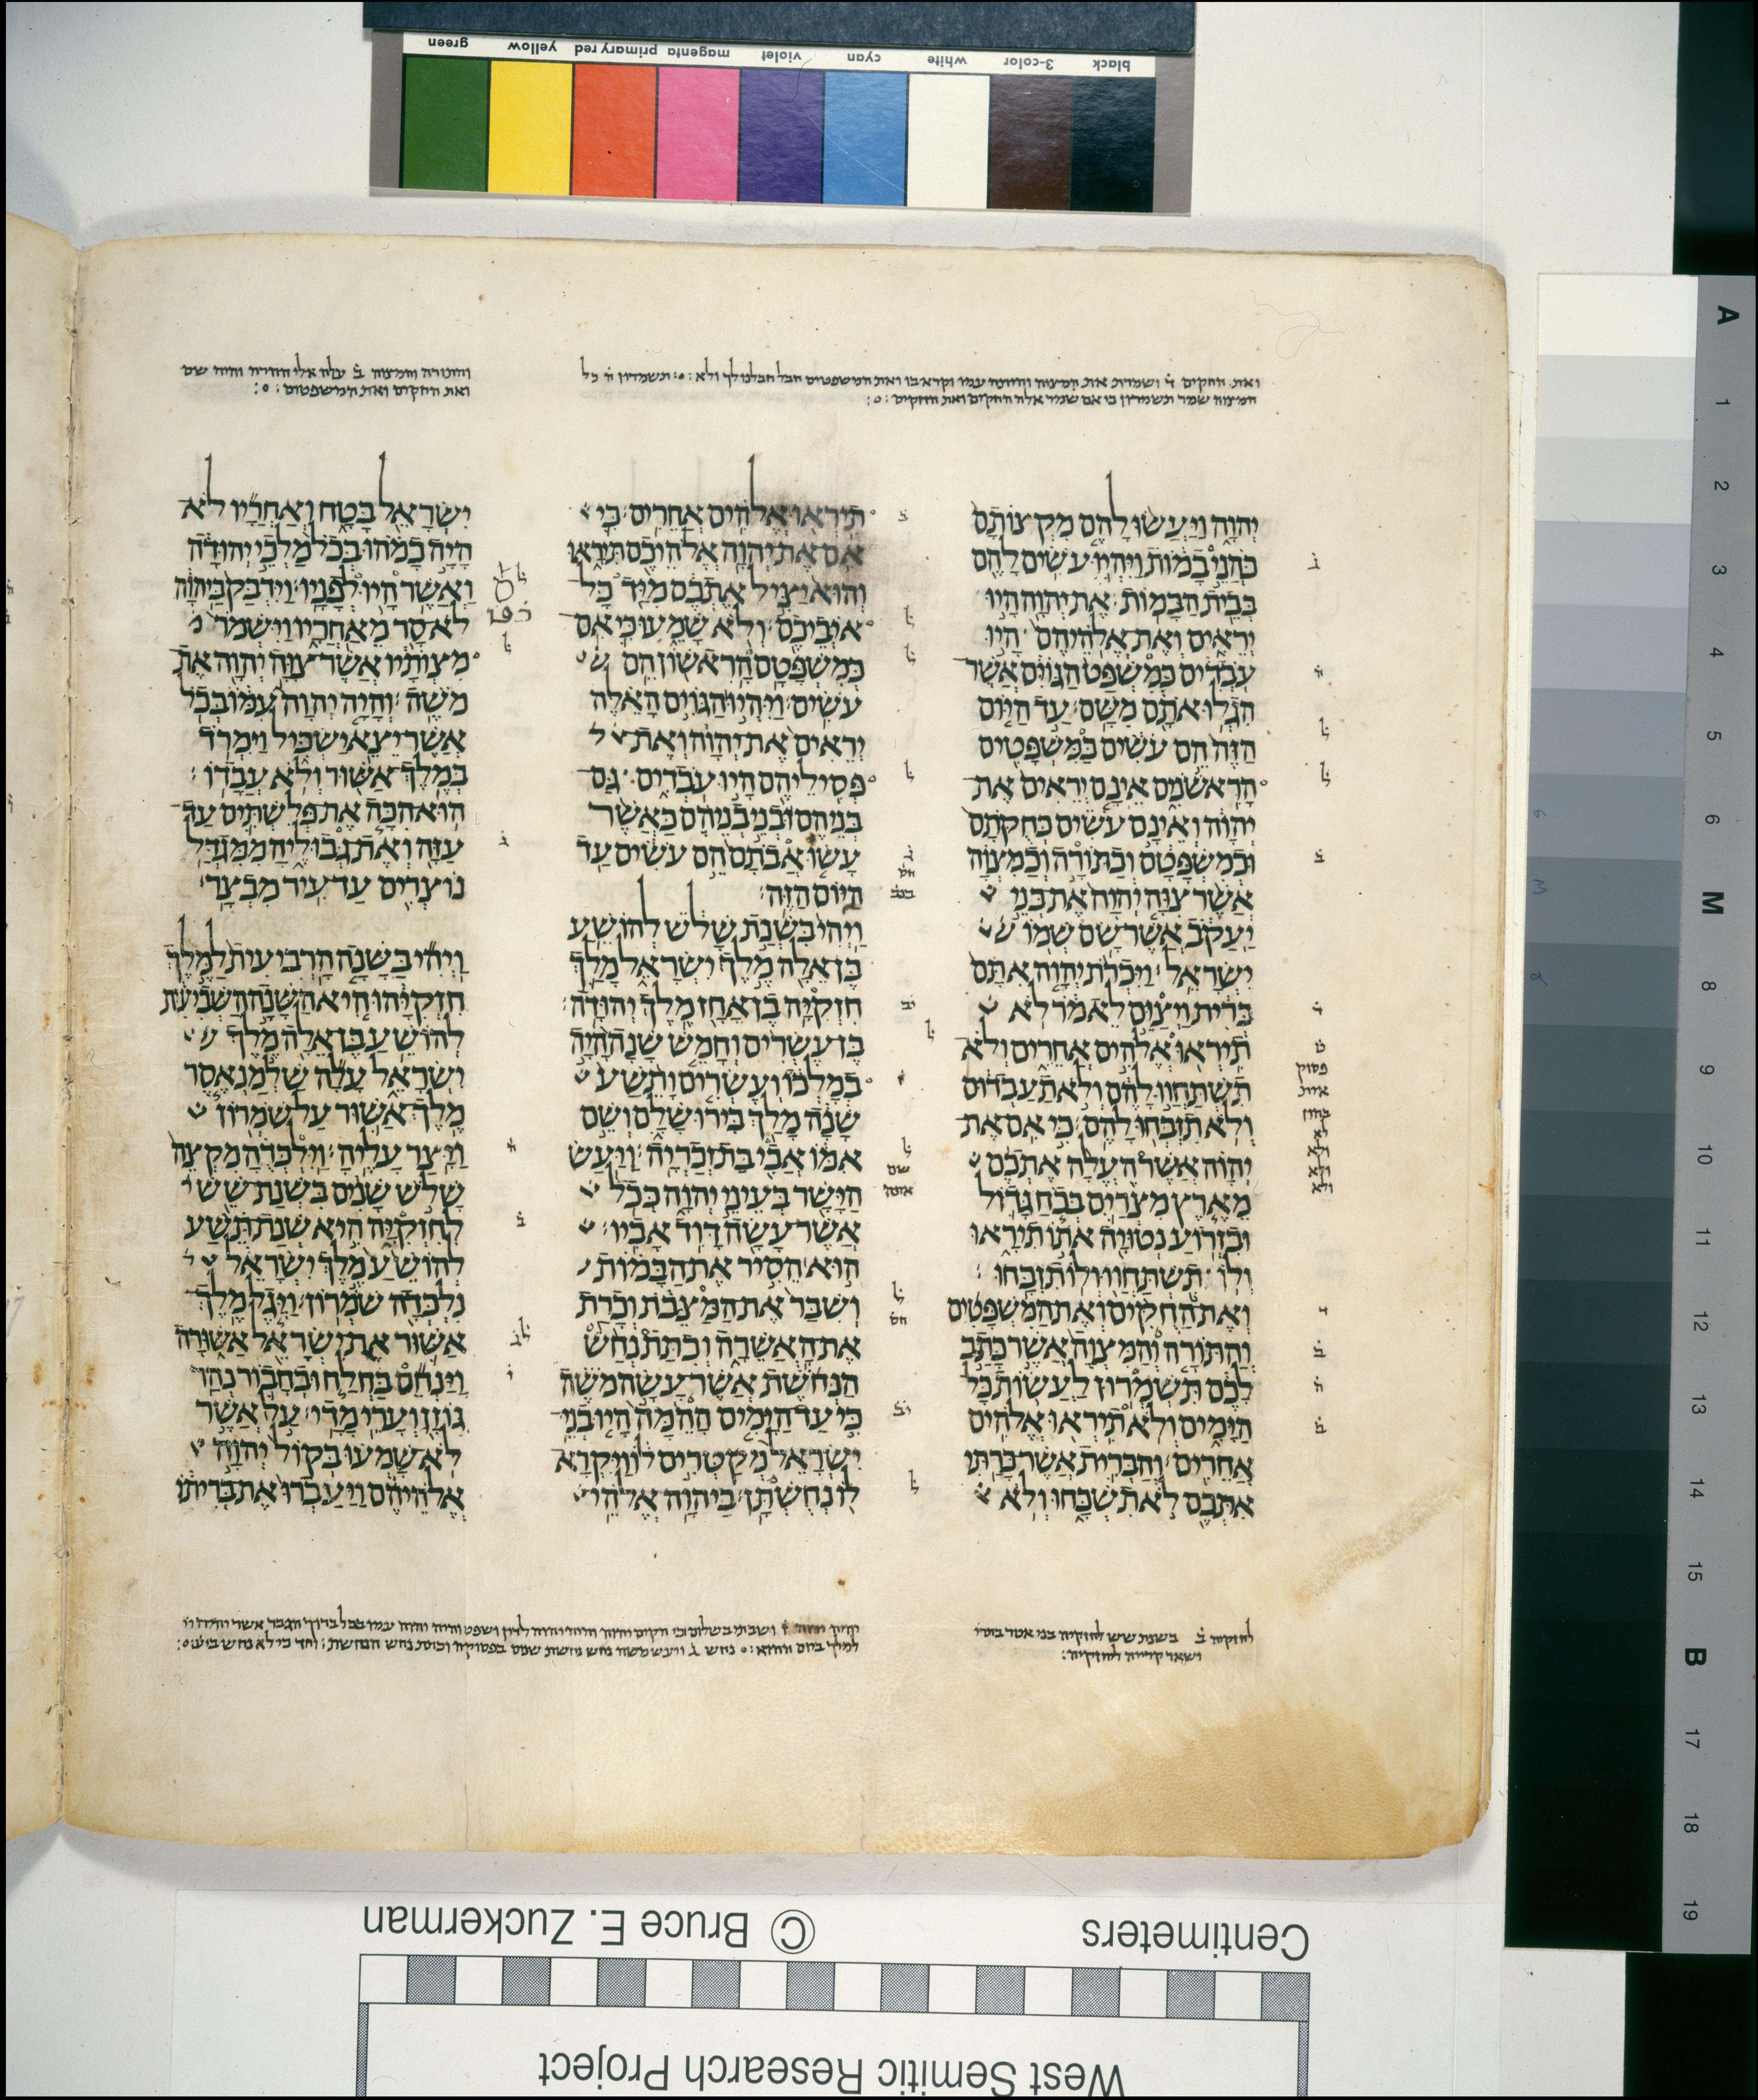 green yellow primary red magenta violet cyan white 3-color black
והתורה והמצוה
ואת החקים ואת המשפטים
ואת החקים ושמרת את המצוה
יהוה ויעשו להם מקצותם
כהני במות ויהיו עשים להם
בבית הבמות את יהוה היו
יראים ואת אלהיהם היו
עבדים כמשפט הגוים אשר
הגלו אתם משם עד היום
הזה הם עשים כמשפטים
הראשנים אינם יראים את
יהוה ואינם עשים כחקתם
וכמשפטם וכתורה וכמצוה
אשר צוה יהוה את בני
יעקב אשר שם שמו
ישראל ויכרת יהוה אתם
ברית ויצום לאמר לא
תיראו אלהים אחרים ולא
תשתחוו להם ולא תעבדום
ולא תזבחו להם כי אם את
יהוה אשר העלה אתכם
מארץ מצרים בכח גדול
ובזרוע נטויה אתו תיראו
ולו תשתחוו ולו תזבחו
ואת החקים ואת המשפטים
והתורה והמצוה אשר כתב
לכם תשמרון לעשות כל
הימים ולא תיראו אלהים
אחרים והברית אשר כרתי
אתכם לא תשכחו ולא
תיראו אלהים אחרים כי
אם את יהוה אלהיכם תיראו
והוא יציל אתכם מיד כל
איביכם ולא שמעו כי אם
כמשפטם הראשון הם
עשים ויהיו הגוים האלה
יראים את יהוה ואת
פסיליהם היו עבדים גם
בניהם ובני בניהם כאשר
עשו אבתם הם עשים עד
היום הזה
ויהי בשנת שלש להושע
בן אלה מלך ישראל מלך
חזקיה בן אחז מלך יהודה
בן עשרים וחמש שנה היה
במלכו ועשרים ותשע
שנה מלך בירושלם ושם
אמו אבי בת זכריה ויעש
הישר בעיני יהוה ככל
אשר עשה דוד אביו
הוא הסיר את הבמות
ושבר את המצבת וכרת
את האשרה וכתת נחש
הנחשת אשר עשה משה
כי עד הימים ההמה היו בני
ישראל מקטרים לו ויקרא
לו נחשתן ביהוה אלהי
ישראל בטח ואחריו לא
היה כמהו בכל מלכי יהודה
ואשר היו לפניו וידבק ביהוה
לא סר מאחריו וישמר
מצותיו אשר צוה יהוה את
משה והיה יהוה עמו בכל
אשר יצא ישכיל וימרד
במלך אשור ולא עבדו
הוא הכה את פלשתים עד
עזה ואת גבוליה ממגדל
נוצרים עד עיר מבצר
ויהי בשנה הרביעית למלך
חזקיהו היא השנה השביעית
להושע בן אלה מלך
ישראל עלה שלמנאסר
מלך אשור על שמרון
ויצר עליה וילכדה מקצה
שלש שנים בשנת שש
לחזקיה היא שנת תשע
להושע מלך ישראל
נלכדה שמרון ויגל מלך
אשור את ישראל אשורה
וינחם בחלח ובחבור נהר
גוזן וערי מדי על אשר
לא שמעו בקול יהוה
אלהיהם ויעברו את בריתו
לחזקיה בשנת שש לחזקיה
ושאר קריה לחזקיהו
A 1 2 3 4 5 6 M 8 9 10 11 12 13 14 15 B 17 18 19
Centimeters © Bruce E. Zuckerman
West Semitic Research Project